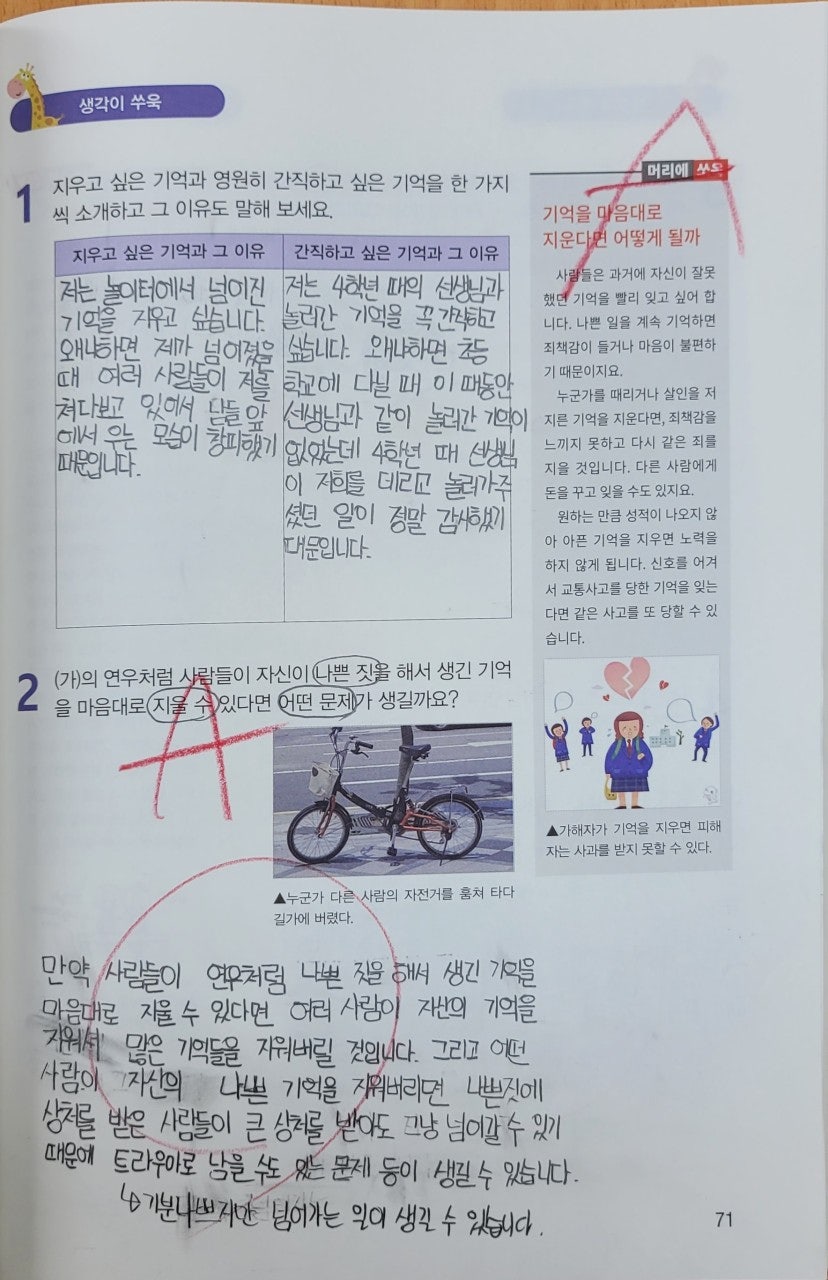 생각이 쑤욱
1 지우고 싶은 기억과 영원히 간직하고 싶은 기억을 한 가지
씩 소개하고 그 이유도 말해 보세요.
지우고 싶은 기억과 그 이유
저는 놀이터에서 넘어진
기억을 지우고 싶습니다.
왜냐하면 제가 넘어졌을
때 여러 사람들이 저를
쳐다보고 있어서 남들 앞
에서 우는 모습이 창피했기
때문입니다.
간직하고 싶은 기억과 그 이유
저는 4학년 때의 선생님과
놀러간 기억을 꼭 간직하고
싶습니다. 왜냐하면 초등
학교에 다닐 때 이 때동안
선생님과 같이 놀러간 기억이
없었는데 4학년 때 선생님
이 저희를 데리고 놀러가주
셨던 일이 정말 감사했기
때문입니다.
2 (가)의 연우처럼 사람들이 자신이 나쁜 짓을 해서 생긴 기억
을 마음대로 지울 수 있다면 어떤 문제가 생길까요?
A
▲누군가 다른 사람의 자전거를 훔쳐 타다
길가에 버렸다.
만약 사람들이 연우처럼 나쁜 짓을 해서 생긴 기억을
마음대로 지울 수 있다면 여러 사람이 자산의 기억을
지워서 많은 기억들을 지워버릴 것입니다. 그리고 어떤
사람이 자산의 나쁜 기억을 지워버리면 나쁜짓에
상처를 받은 사람들이 큰 상처를 받아도 그냥 넘어갈 수 있기
때문에 트라우마로 남을 수도 있는 문제 등이 생길 수 있습니다.
↳기분나쁘지만 넘어가는 일이 생길 수 있습니다.
A
머리에 쏘옥
기억을 마음대로
지운다면 어떻게 될까
사람들은 과거에 자신이 잘못
했던 기억을 빨리 잊고 싶어 합
니다. 나쁜 일을 계속 기억하면
죄책감이 들거나 마음이 불편하
기 때문이지요.
누군가를 때리거나 살인을 저
지른 기억을 지운다면, 죄책감을
느끼지 못하고 다시 같은 죄를
지을 것입니다. 다른 사람에게
돈을 꾸고 잊을 수도 있지요.
원하는 만큼 성적이 나오지 않
아 아픈 기억을 지우면 노력을
하지 않게 됩니다. 신호를 어겨
서 교통사고를 당한 기억을 잊는
다면 같은 사고를 또 당할 수 있
습니다.
▲가해자가 기억을 지우면 피해
자는 사과를 받지 못할 수 있다.
71